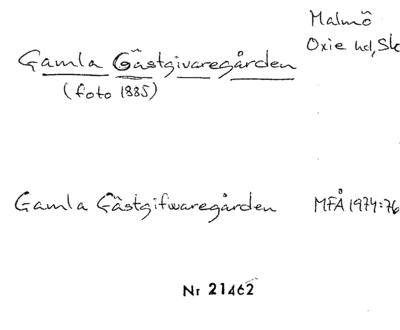 Malmö
Oxie hd, Sk
Gamla Gästgivaregården
(foto 1885)
Gamla Gästgifwaregården MFÅ 1974:76
Nr 21462